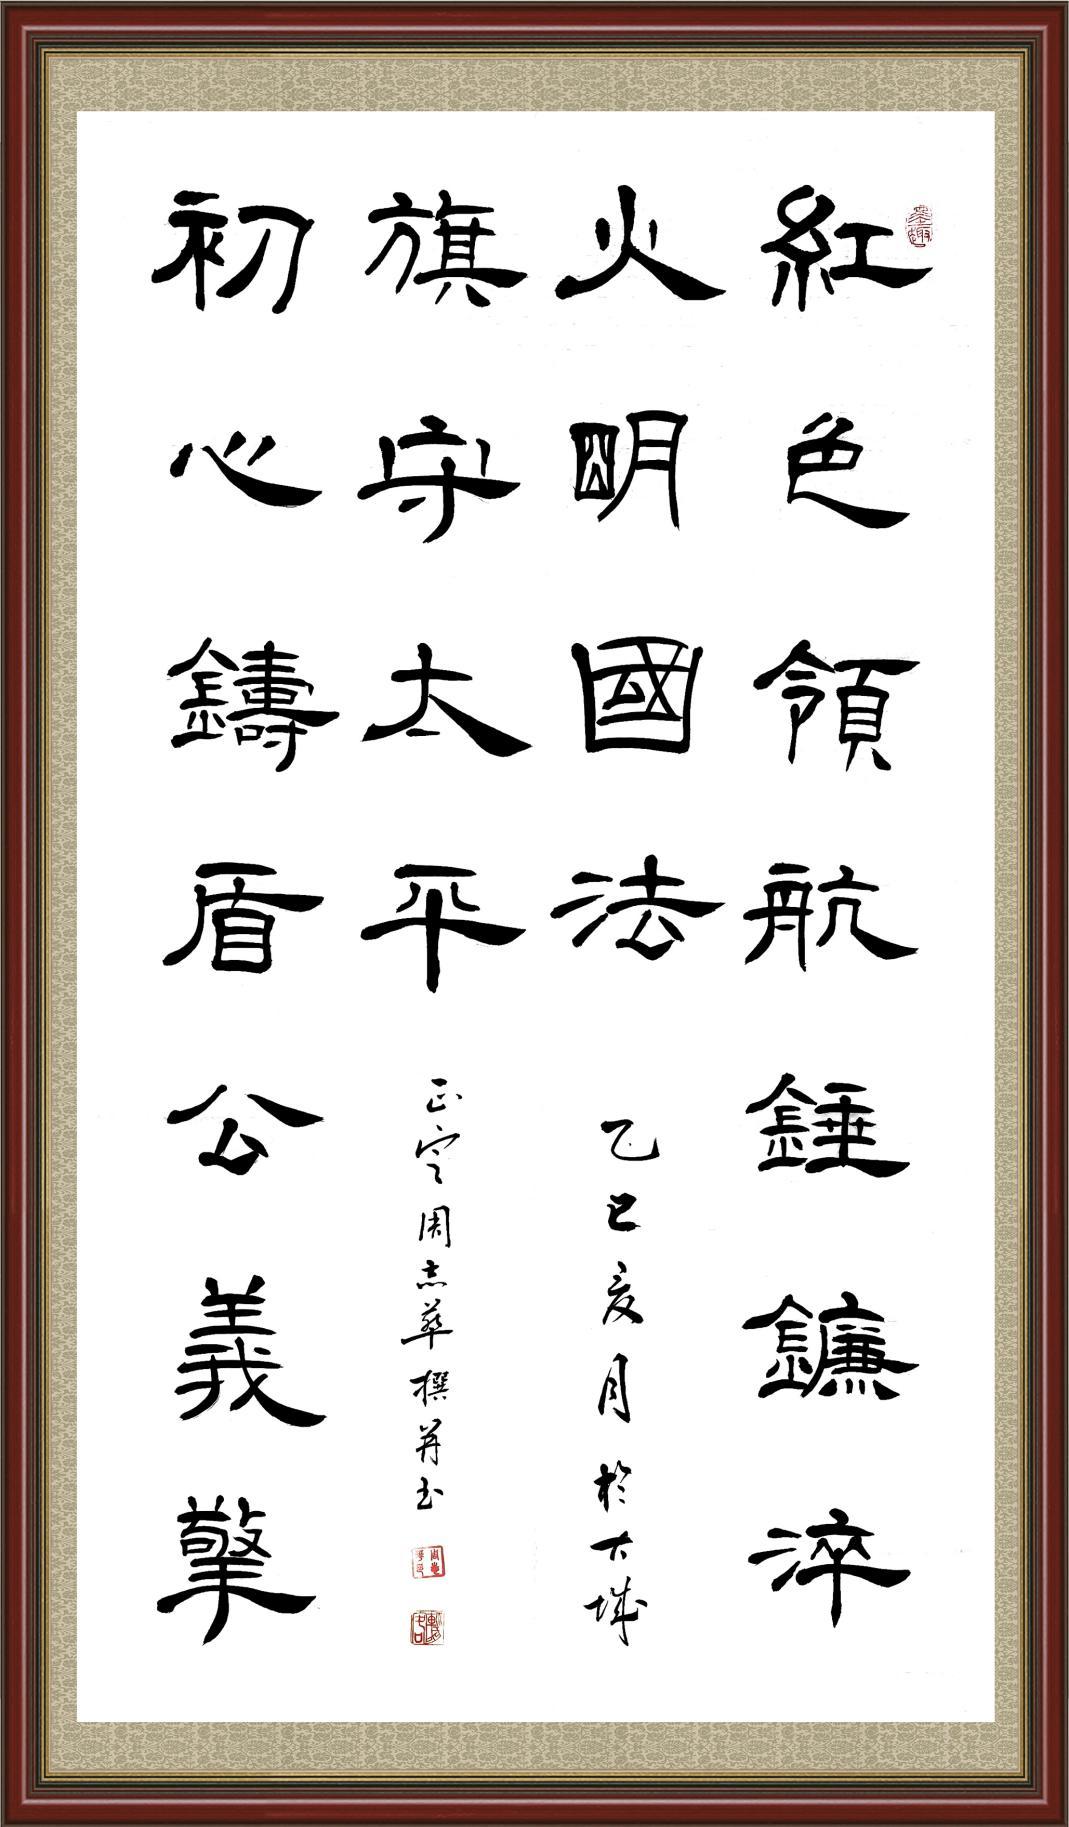 墨趣
紅色領航錘鐮淬
火明國法
乙巳亥月於大城
初心鑄盾公義擎
旗守太平
正寧周志華撰并書